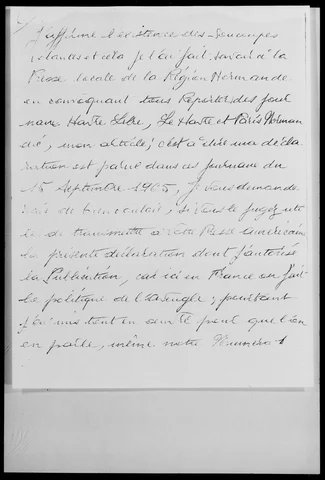 J'affirme l'existence des Soucoupes
volantes et cela je l'ai fait savoir à la
Presse locale de la Région Normande
en convoquant tous Reporters des jour
naux Havre Libre, Le Havre et Paris Norman
die, mon article; c'est à dire ma décla
ration est parue dans ces journaux du
15 Septembre 1965, je vous demande
de bien vouloir, si vous le jugez uti
le de transmettre à votre Presse américaine
la présente déclaration dont j'autorise
la Publication, car ici en France on fait
la politique de l'aveugle; pourtant
j'ai mis tout en œuvre pour que l'on
en parle, même notre